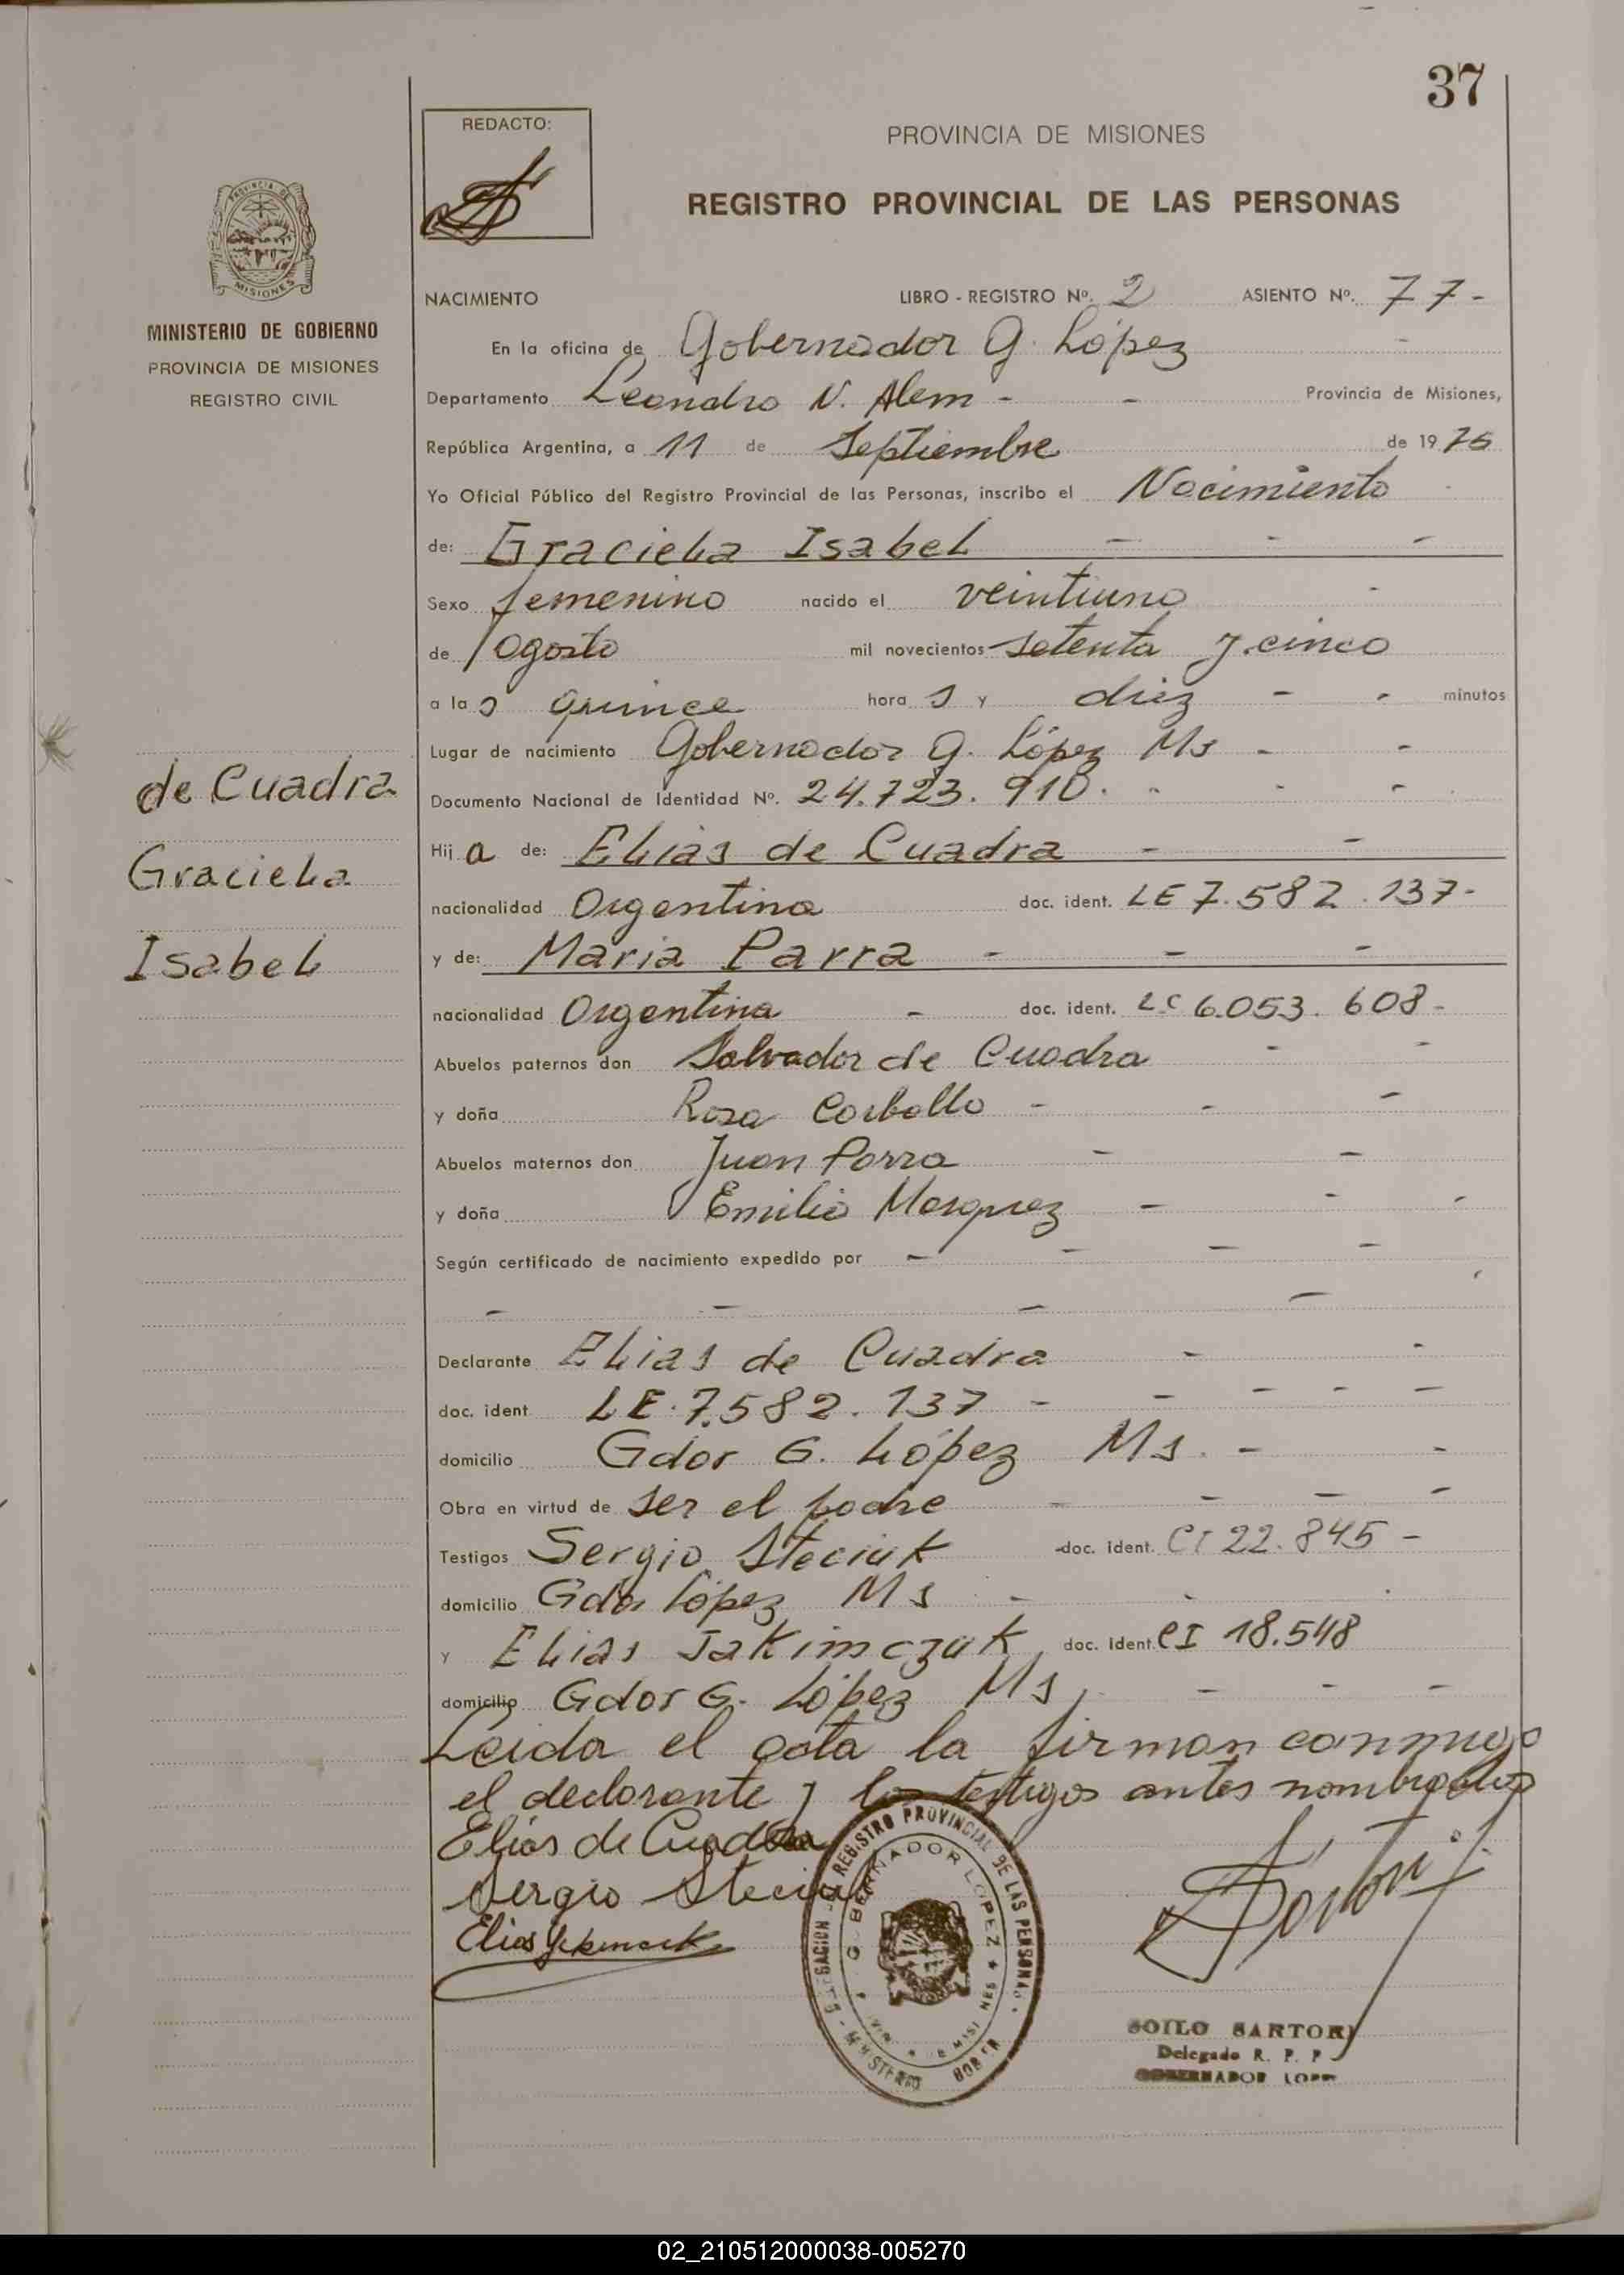 37
REDACTO:
PROVINCIA DE MISIONES
REGISTRO PROVINCIAL DE LAS PERSONAS
PROVINCIA DE
MISIONES
MINISTERIO DE GOBIERNO
PROVINCIA DE MISIONES
REGISTRO CIVIL
NACIMIENTO LIBRO - REGISTRO Nº. 2 ASIENTO Nº. 77-
En la oficina de Gobernador G. López -
Departamento Leandro N. Alem - - Provincia de Misiones,
República Argentina, a 11 de Septiembre de 1975
Yo Oficial Público del Registro Provincial de las Personas, inscribo el Nacimiento
de: Graciela Isabel - - -
Sexo femenino nacido el veintiuno -
de Agosto mil novecientos setenta y cinco
a las quince horas y diez - - minutos
Lugar de nacimiento Gobernador G. López Ms - -
de Cuadra
Graciela
Isabel
Documento Nacional de Identidad Nº. 24.723.910. - - -
Hija de: Elias de Cuadra - -
nacionalidad Argentina doc. ident. LE 7.582.137-
y de: Maria Parra - - -
nacionalidad Argentina - doc. ident. LC 6.053.608-
Abuelos paternos don Salvador de Cuadra - -
y doña Rosa Carballo - - -
Abuelos maternos don Juan Parra - -
y doña Emilia Marquez - - -
Según certificado de nacimiento expedido por - - - -
- - - -
Declarante Elias de Cuadra - -
doc. ident LE.7.582.137 - - - - -
domicilio Gdor G. López Ms. - -
Obra en virtud de ser el padre - - - -
Testigos Sergio Steciuk doc. ident. CI 22.845 -
domicilio Gdor López Ms - -
y Elias Jakimczuk doc. Ident. CI 18.548
domicilio Gdor G. López Ms, - - -
Leida el acta la firman conmigo
el declarante y los testigos antes nombrados
Elias de Cuadra
Sergio Steciuk
Elias
REGISTRO PROVINCIAL DE LAS PERSONAS
GOBERNADOR LOPEZ
SOILO SARTORI
Delegado R. P. P
GOBERNADOR LOPEZ
02_210512000038-005270